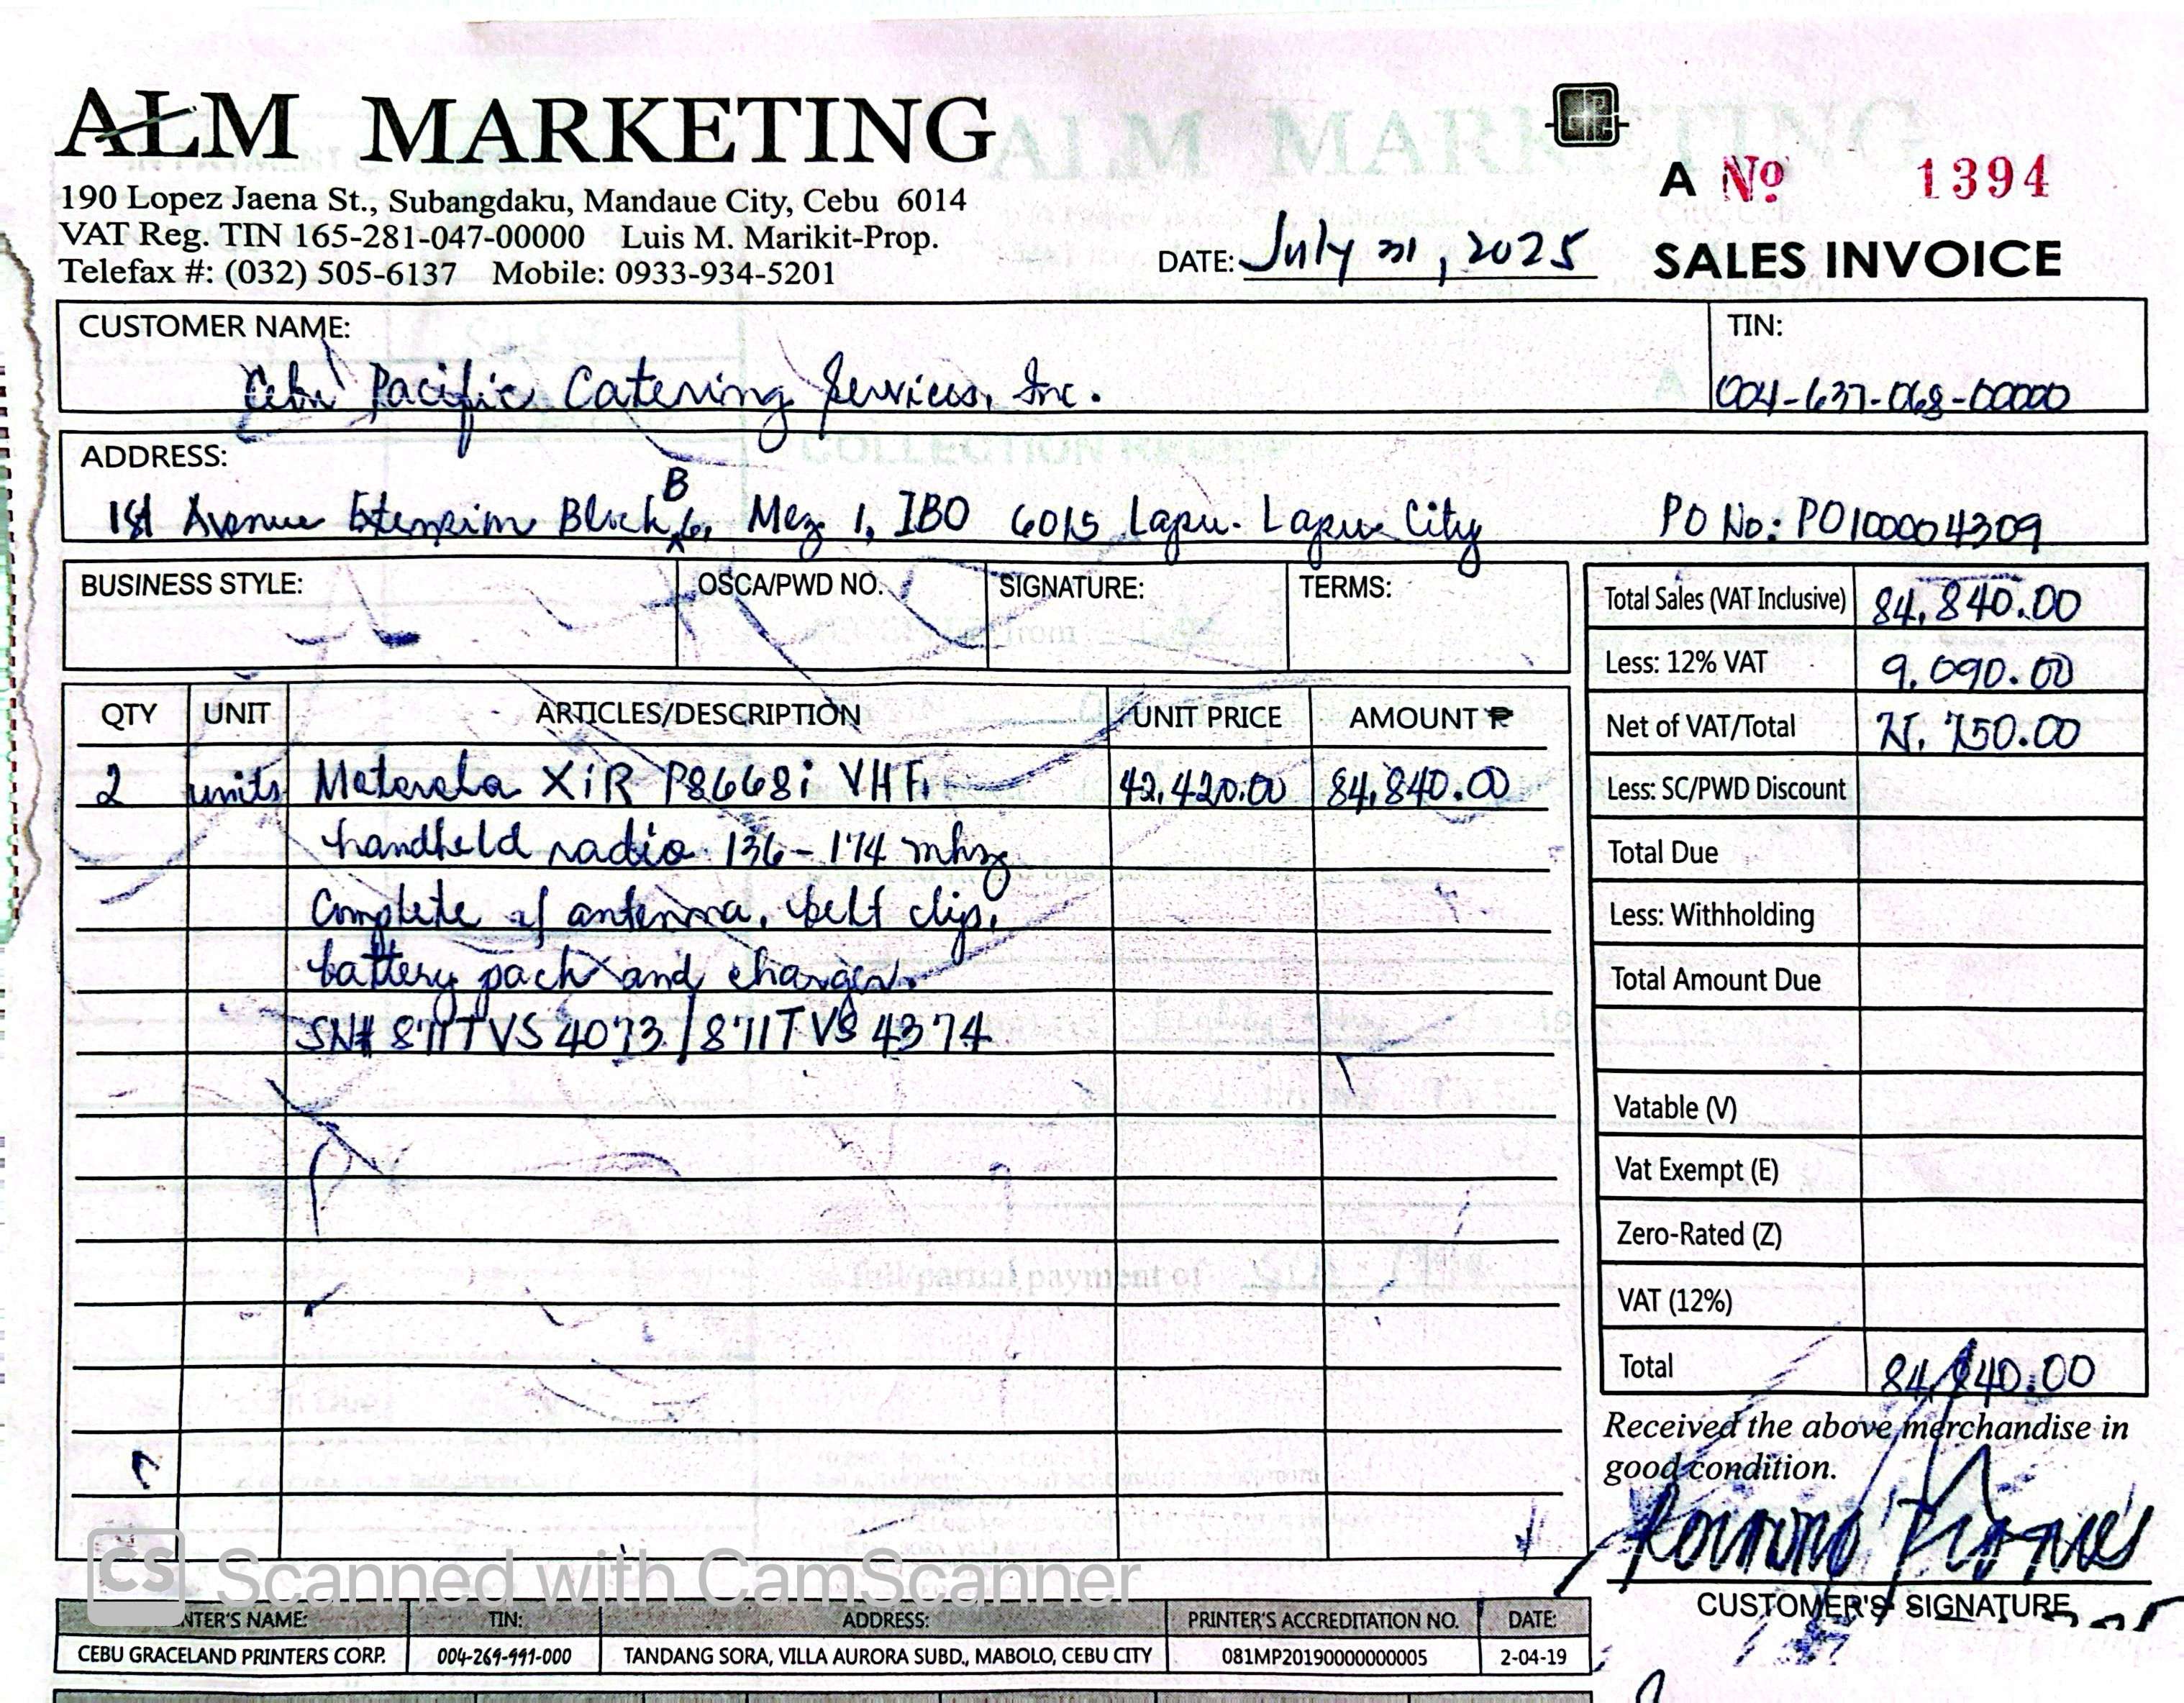 ALM MARKETING
190 Lopez Jaena St., Subangdaku, Mandaue City, Cebu 6014
VAT Reg. TIN 165-281-047-00000 Luis M. Marikit-Prop.
Telefax #: (032) 505-6137 Mobile: 0933-934-5201
A No 1394
DATE: July 31, 2025
SALES INVOICE
CUSTOMER NAME:
Cebu Pacific Catering Services, Inc.
TIN:
004-637-068-00000
ADDRESS:
1st Avenue Extension Block B 6, Mez 1, IBO 6015 Lapu-Lapu City
PO No: PO100004309
BUSINESS STYLE: OSCA/PWD NO. SIGNATURE: TERMS:
QTY UNIT ARTICLES/DESCRIPTION UNIT PRICE AMOUNT ₱
2 units Motorola XiR P8668i VHF, 42,420.00 84,840.00
handheld radio 136-174 mhz
Complete w/ antenna, belt clip,
battery pack and charger.
SN# 871TVS4073 / 871TVS4374
Total Sales (VAT Inclusive) 84,840.00
Less: 12% VAT 9,090.00
Net of VAT/Total 75,750.00
Less: SC/PWD Discount
Total Due
Less: Withholding
Total Amount Due
Vatable (V)
Vat Exempt (E)
Zero-Rated (Z)
VAT (12%)
Total 84,840.00
Received the above merchandise in
good condition.
CUSTOMER'S SIGNATURE
CS Scanned with CamScanner
NTER'S NAME: TIN: ADDRESS: PRINTER'S ACCREDITATION NO. DATE:
CEBU GRACELAND PRINTERS CORP. 004-269-991-000 TANDANG SORA, VILLA AURORA SUBD., MABOLO, CEBU CITY 081MP20190000000005 2-04-19